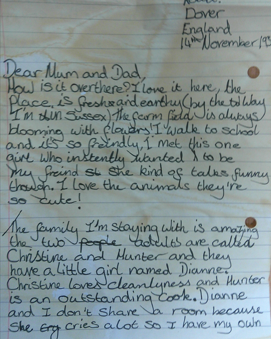 Dover
England
14th November 19
Dear Mum and Dad,
How is it over there? I love it here, the
place is fresh and earthy (by the way
I'm in Sussex) The farm field is always
blooming with flowers I walk to school
and it's so freindly, I met this one
girl who instently wanted to be
my freind she kind of talks funny
though. I love the animals they're
so cute!
The family I'm staying with is amazing
the two people adults are called
Christine and Hunter and they
have a little girl named Dianne.
Christine loves cleanlyness and Hunter
is an outstanding cook. Dianne
and I don't share a room because
she cry cries alot so I have my own